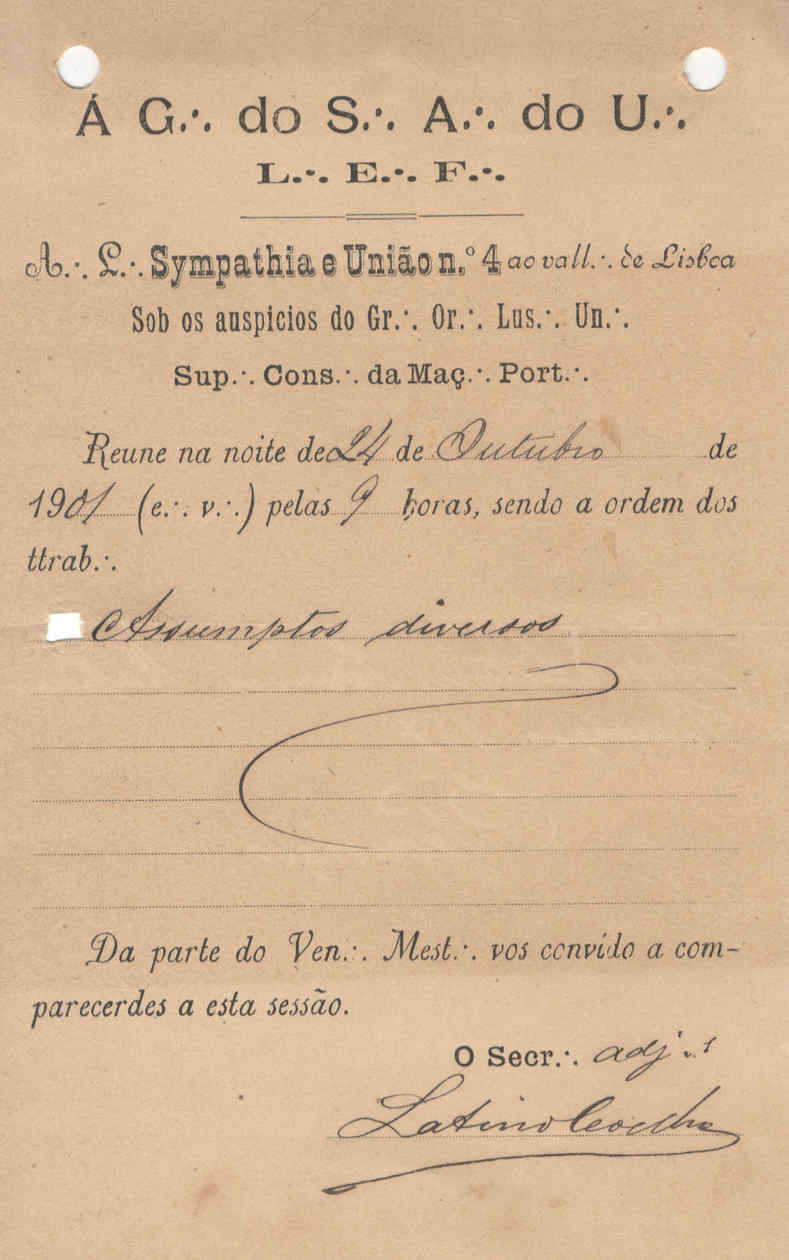 Á G∴ do S∴ A∴ do U∴
L∴ E∴ F∴
A∴ L∴ Sympathia e União n.º 4 ao vall∴ de Lisboa
Sob os auspicios do Gr∴ Or∴ Lus∴ Un∴
Sup∴ Cons∴ da Maç∴ Port∴
Reune na noite de 24 de Outubro de
1901 (e∴ v∴) pelas 9 horas, sendo a ordem dos
ttrab∴
Assumptos diversos
Da parte do Ven∴ Mest∴ vos convido a com-
parecerdes a esta sessão.
O Secr∴ adj∴
Latino Coelho